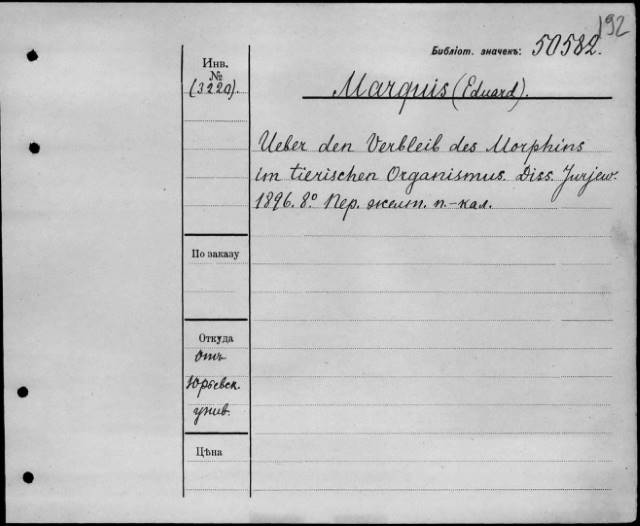 192
Библіот. значекъ: 50582.
Инв.
№
(3220).
Marquis (Eduard).
Ueber den Verbleib des Morphins
im tierischen Organismus. Diss. Jurjew.
1896. 8° Пер. желт. п.-кал.
По заказу
Откуда
Отъ
Юрьевск.
унив.
Цѣна